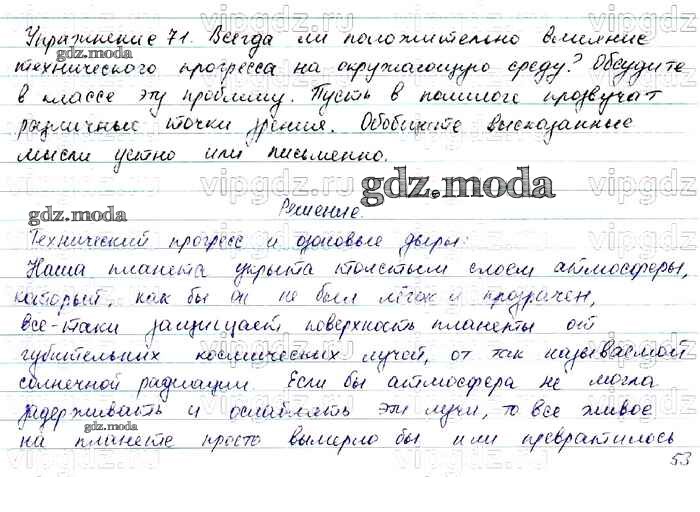 Упражнение 71. Всегда ли положительно влияние
gdz.moda
технического прогресса на окружающую среду? Обсудите
в классе эту проблему. Пусть в полилоге прозвучат
различные точки зрения. Обобщите высказанные
мысли устно или письменно.
gdz.moda
gdz.moda
Решение.
Технический прогресс и озоновые дыры:
Наша планета укрыта толстым слоем атмосферы,
который, как бы он не был лёгок и прозрачен,
все-таки защищает поверхность планеты от
gdz.moda
губительных космических лучей, от так называемой
солнечной радиации. Если бы атмосфера не могла
задерживать и ослаблять эти лучи, то все живое
gdz.moda
на планете просто вымерло бы или превратилось
53